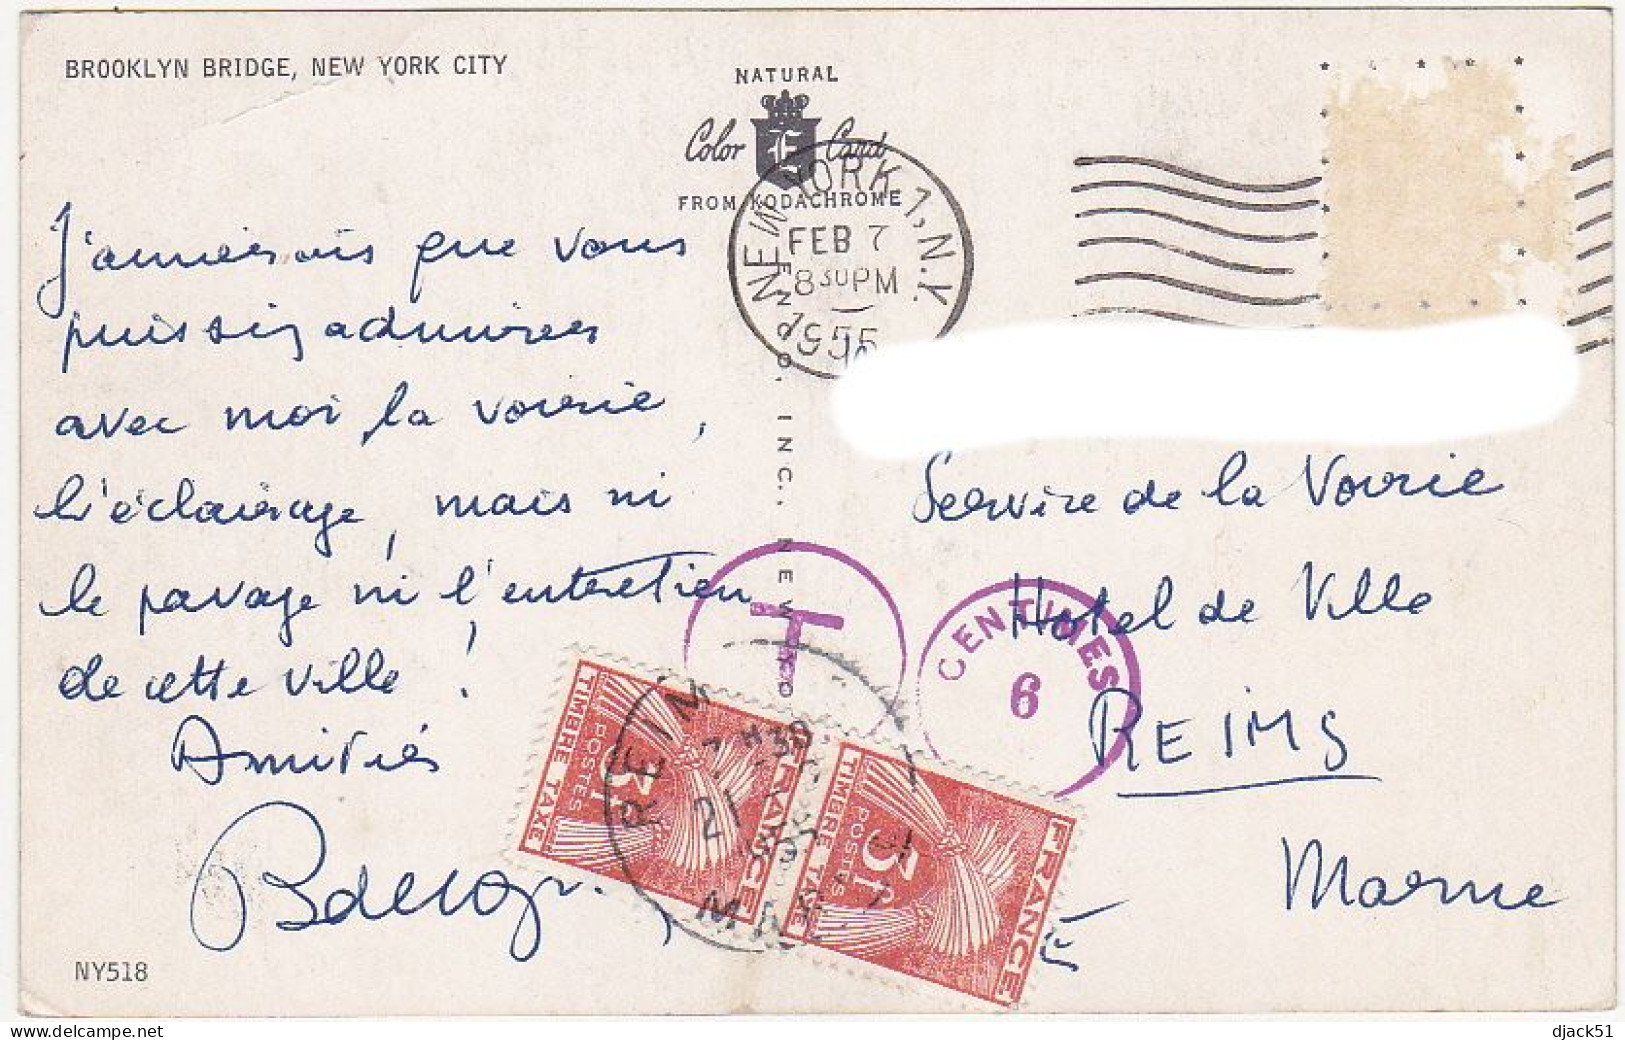 BROOKLYN BRIDGE, NEW YORK CITY
NATURAL
Color E Card
FROM KODACHROME
NEW YORK 1, N.Y.
FEB 7
8 30 PM
1955
J'aimerais que vous
puissiez admirer
avec moi la voirie,
l'éclairage, mais ni
le pavage ni l'entretien
de cette ville !
Amitiés
Service de la Voirie
Hotel de Ville
REIMS
Marne
T
CENTIMES
6
TIMBRE TAXE
3f
POSTES
FRANCE
TIMBRE TAXE
3f
POSTES
FRANCE
REIMS
21
1955
NY518
djack51